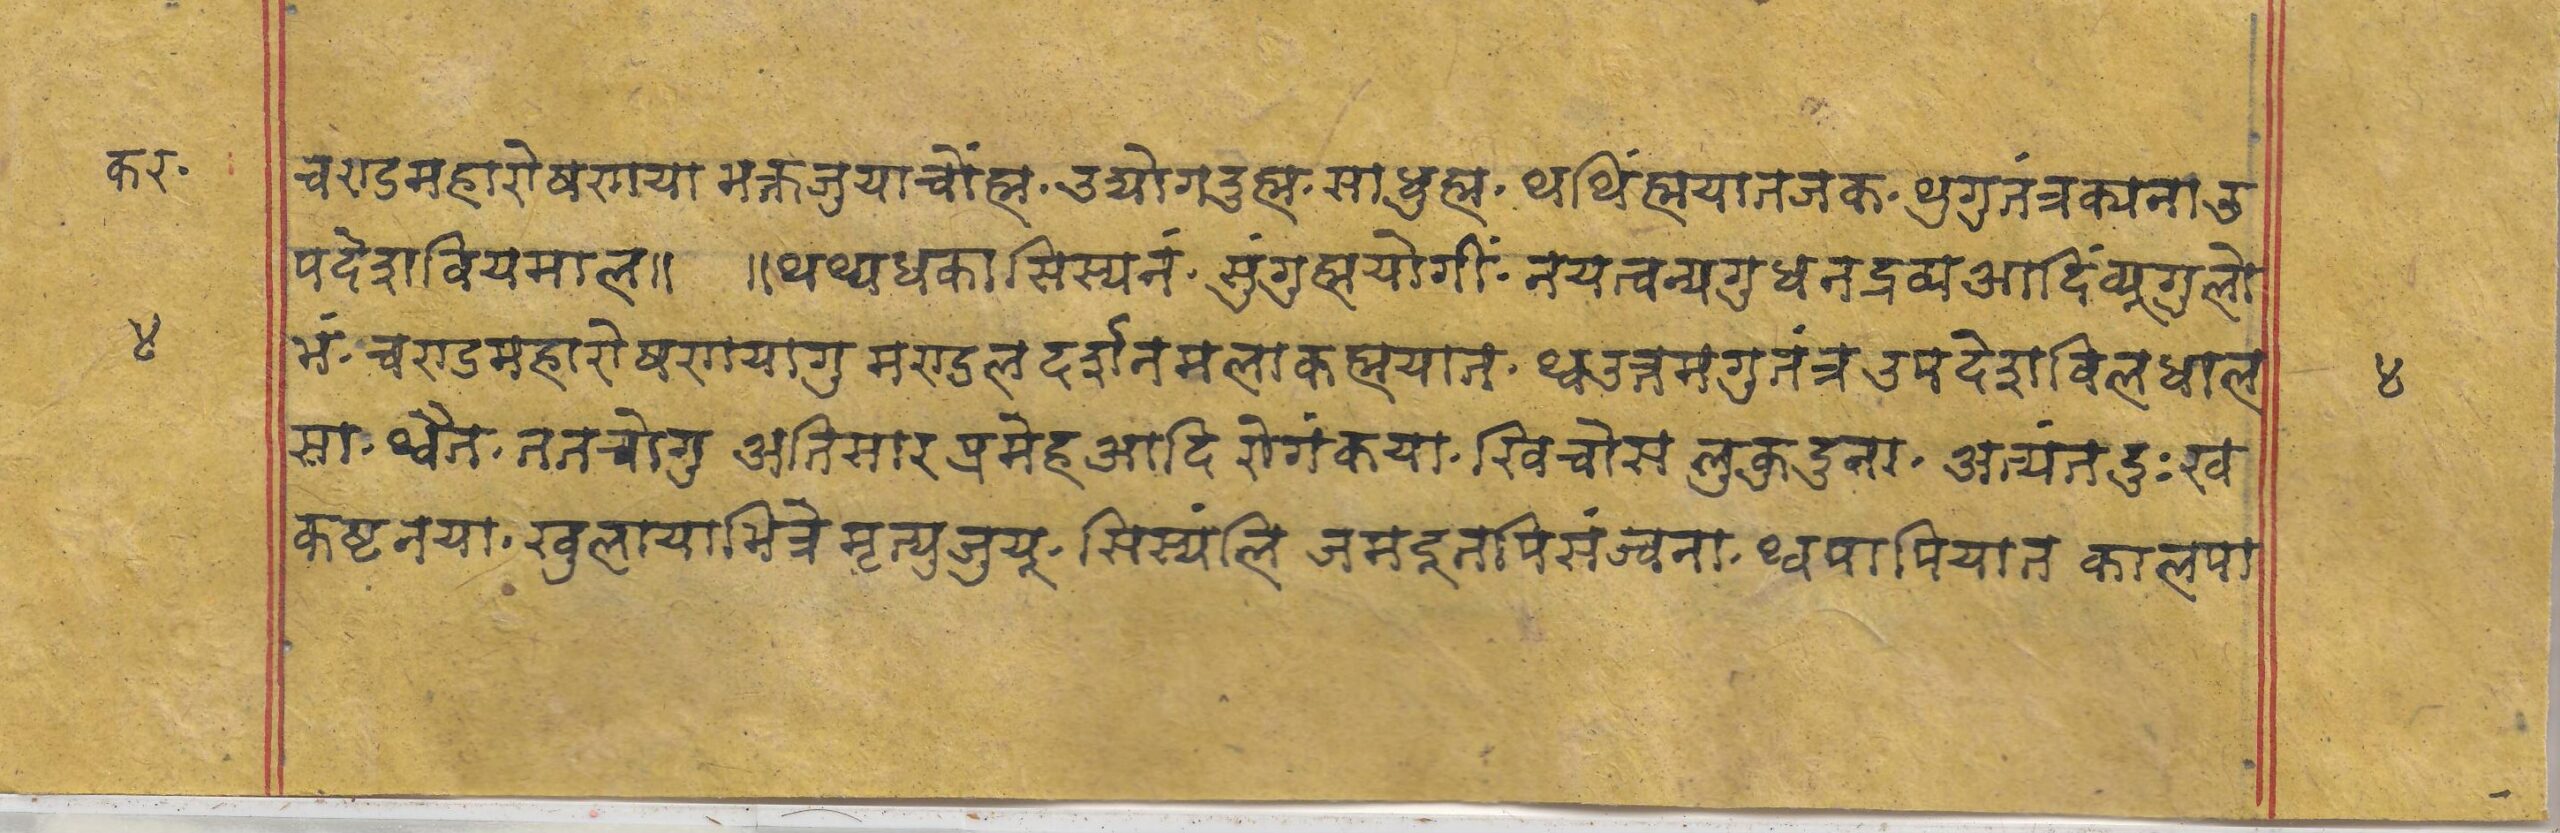 कर॰
चण्डमहारोषणया भक्तजुयाचोंह्म॰ उद्योगदुह्म॰ साधुह्म॰ थथिंह्मयातजक॰ थुगुतंत्रक्यनाउ
पदेशवियमाल॥ ॥थथ्यधका सिस्यनं॰ सुंगुह्मयोगीं॰ नयत्वन्यगुधनद्रव्यआदिंव्यूगुलो
४
भं॰ चण्डमहारोषणयागु मण्डल दर्शनमलाकह्मयात॰ थ्वउत्तमगुतंत्र उपदेशविलधाल
४
सा॰ थ्वैत॰ ततचोगु अतिसार प्रमेह आदि रोगंकया॰ खिचोस लुकुदुना॰ अत्यंतदुःख
कष्टनया॰ खुलायाभित्रे मृत्युजुयू॰ सिस्यंलि जमदूतपिसंज्वना॰ थ्वपापियात कालपा